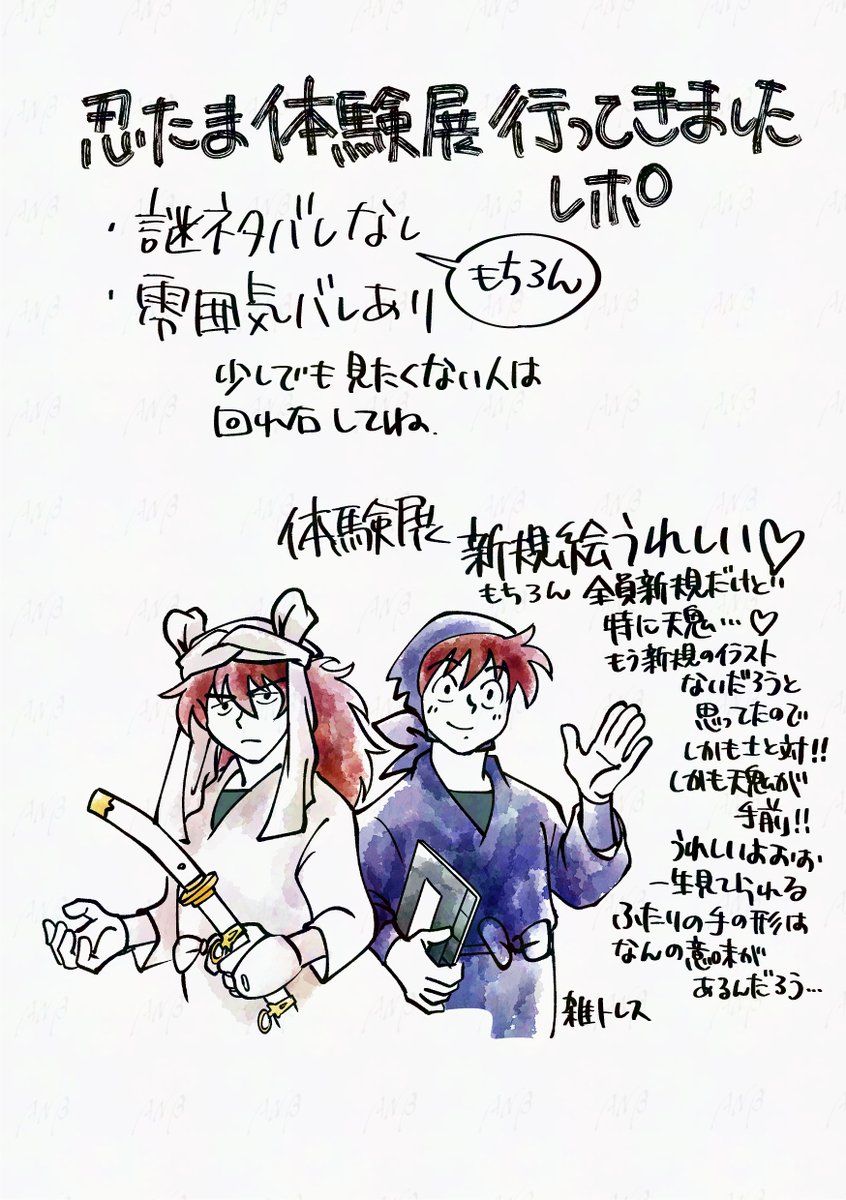 忍たま体験展行ってきました
レポ
・謎ネタバレなし
もちろん
・雰囲気バレあり
少しでも見たくない人は
回れ右してね.
体験展 新規絵うれしい♡
もちろん 全員新規だけど
特に天鬼…♡
もう新規のイラスト
ないだろうと
思ってたので
しかも土と対!!
しかも天鬼が
手前!!
うれしいよおお
一生見てられる
ふたりの手の形は
なんの意味が
あるんだろう…
雑トレス